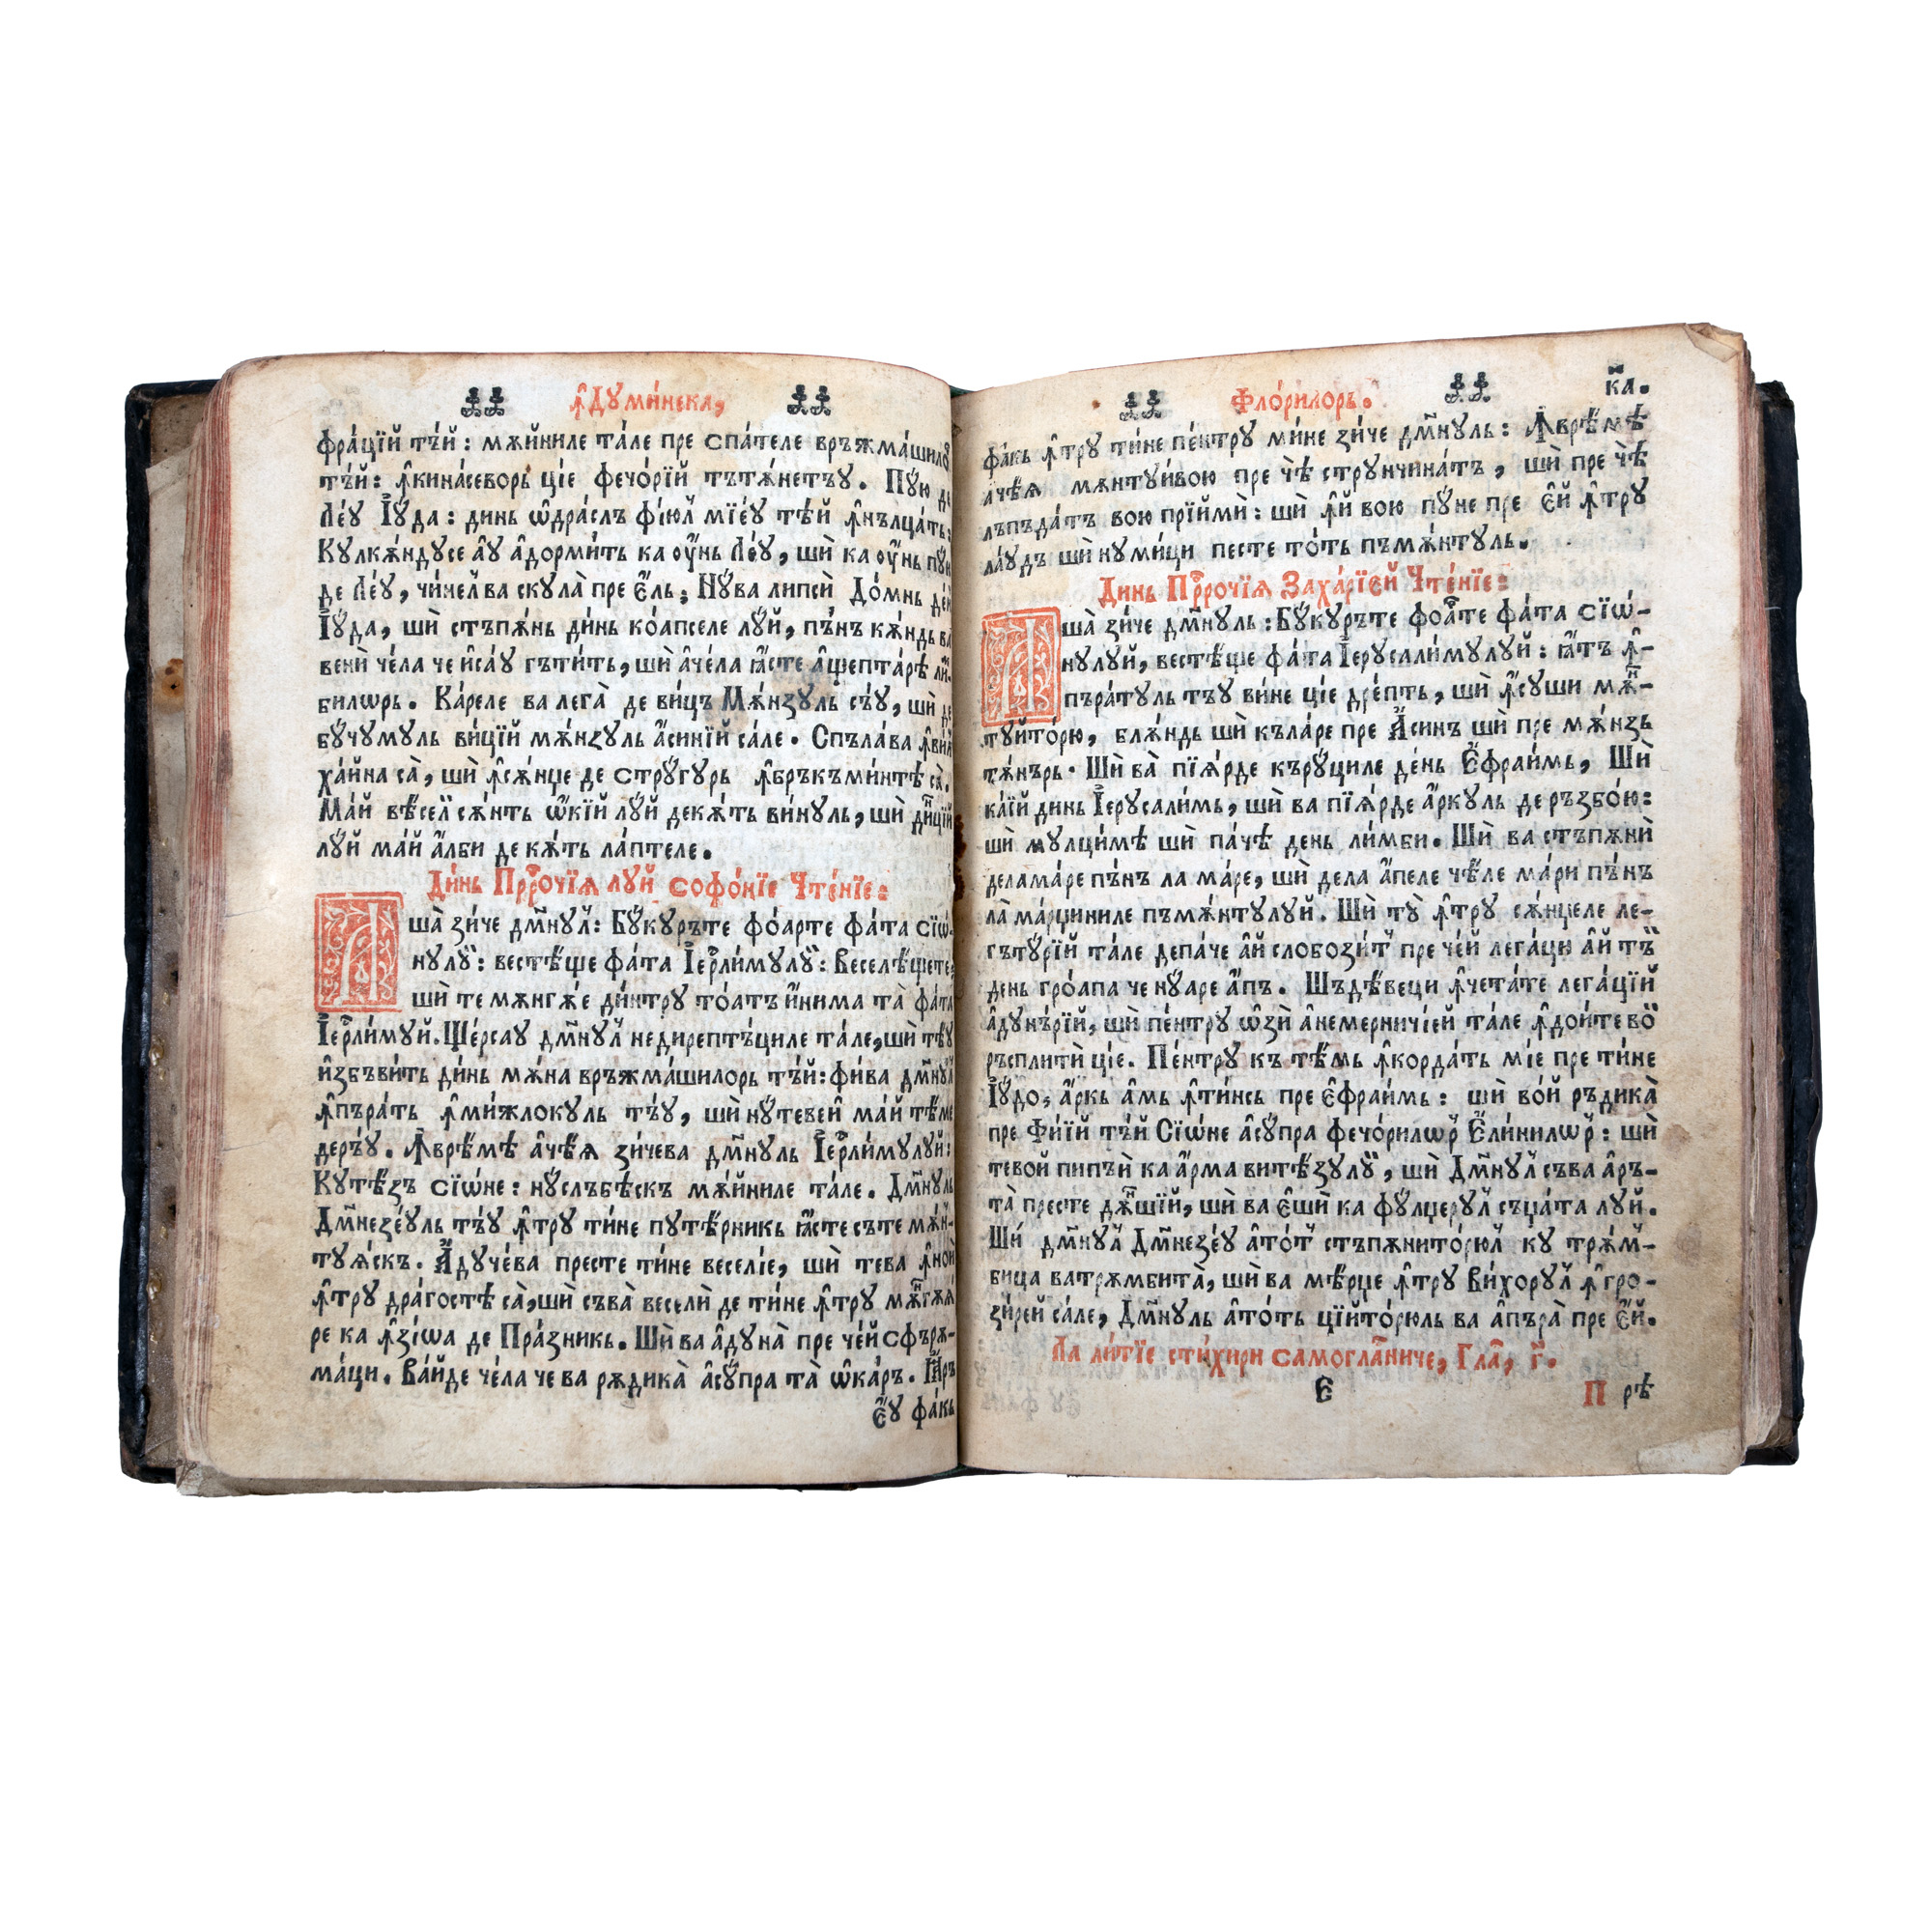 Ꙟ Думи́нека,
фра́цїй тъ́й : мѫ́йниле та́ле пре спа́теле връжма́шилѡ
тъ́й : ꙟкина́севорь ціе фечо́рїй тъ́тѫнетꙋ . Пꙋ́ю де
Ле́ꙋ І҆ꙋ́да : динь ѡ҆дра́слъ фі́юл мїе́ꙋ те́й ꙟнълца́ть :
Кꙋлкѫ́ндꙋсе а҆ꙋ а҆дорми́ть ка ᲂу҆́нь Ле́ꙋ , шѝ ка ᲂу҆́нь пꙋ́и
де Ле́ꙋ , чи́нел ва скꙋла̀ пре є҆́ль ; Нꙋ́ва липсѝ До́мнь де́н
І҆ꙋ́да , шѝ стъпѫ́нь ди́нь ко́апселе лꙋ́й , пъ́нъ кѫ́ндь ва
венѝ че́ла че и҆са́ꙋ гъти́ть , шѝ а҆че́ла ꙗ҆́сте а҆щепта́рѣ ли́-
билѡрь . Ка́реле ва лега̀ де ви́цъ Мѫ́нзꙋль съ́ꙋ , шѝ де
бꙋ́чꙋмꙋль ви́цїй мѫ́нзꙋль а҆си́нїй са́ле . Спъла́ва ꙟвинь
ха́йна са̀ , шѝ ꙟсѫ́нџе де стрꙋ́гꙋрь ꙟбръкъми́нтѣ са̀ .
Ма́й вѣ́сел сѫ́нть ѡ҆́кїй лꙋ́й декѫ́ть ви́нꙋль , шѝ ди́нцїй
лꙋ́й ма́й а҆́лби де кѫ́ть ла́птеле .
Ди́нь Прⷪ҇ро́чїѧ лꙋ́й софо́нїе Чте́нїе :
А҆ша̀ зи́че дм҃нꙋл : Бꙋ́кꙋръте фо́арте фа́та сїѡ́-
нꙋлꙋй : весте́ще фа́та І҆ерⷭ҇ли́мꙋлꙋй : Веселе́щете ,
шѝ те мѫнгѫ́е ди́нтрꙋ то́атъ и҆́нима та̀ фа́та
І҆ерⷭ҇ли́мꙋй . Ще́рсаꙋ дм҃нꙋл недирептъ́циле та́ле , шѝ те́ꙋ
и҆збъви́ть ди́нь мѫ́на връжма́шилорь тъ́й : фи́ва дм҃нꙋл
ꙟпъра́ть ꙟми́жлокꙋль тъ́ꙋ , шѝ нꙋ́тевей ма́й те́ме
деръ́ꙋ . Ꙟвре́мѣ а҆че́ѧ зи́чева дм҃нꙋль І҆ерⷭ҇ли́мꙋлꙋй :
Кꙋте́зъ сїѡ́не : нꙋ́слъбе́скъ мѫ́йниле та́ле . Дм҃нꙋль
Дм҃незе́ꙋль тъ́ꙋ ꙟтрꙋ ти́не пꙋте́рникь ꙗ҆́сте съте мѫ́н-
тꙋѧ́скъ . А҆дꙋче́ва престе ти́не весе́лїе , шѝ тева ꙟноѝ
ꙟтрꙋ дра́гостѣ са̀ , шѝ съва̀ веселѝ де ти́не ꙟтрꙋ мѫнгѫѧ́
ре ка ꙟзі́ѡа де Пра́зникь . Шѝ ва а҆дꙋна̀ пре че́й сфъръ-
ма́ци . Ва́йде че́ла че ва рѫдика̀ а҆сꙋ́пра та̀ ѡ҆ка́ръ . Ꙗ҆́ръ
є҆́ꙋ фа́кь
Фло́рилорь . к҃а .
фа́кь ꙟтрꙋ ти́не пе́нтрꙋ ми́не зи́че дм҃нꙋль : Ꙟвре́мѣ
а҆че́ѧ мѫнтꙋи́вою пре чѣ̀ стрꙋнчина́тъ , шѝ пре чѣ̀
лъпъда́тъ вою прїймѝ : шѝ ꙟй вою пꙋ́не пре є҆́й ꙟтрꙋ
ла́ꙋдъ шѝ нꙋми́ци песте то́ть пъмѫ́нтꙋль .
Динь Прⷪ҇ро́чїѧ Заха́рїей Чте́нїе :
А҆ша̀ зи́че дм҃нꙋль : Бꙋ́кꙋръте фоа́рте фа́та сїѡ́-
нꙋлꙋй , весте́ще фа́та І҆ерꙋсали́мꙋлꙋй : ꙗ҆́тъ ꙟ-
пъра́тꙋль тъ́ꙋ ви́не ціе дре́пть , шѝ ꙟсꙋши мѫн-
тꙋйто́рю , блѫ́ндь шѝ къла́ре пре А҆́синъ шѝ пре мѫ́нзь
тѫ́нърь . Шѝ ва̀ пїѧ́рде кърꙋ́циле де́нь Є҆фраи́мь , Шѝ
ка́їй динь І҆ерꙋсали́мь , шѝ ва пїѧ́рде а҆́ркꙋль де ръзбо́ю :
шѝ мꙋлци́мѣ шѝ па́чѣ день ли́мби . Шѝ ва стъпѫнѝ
дела ма́ре пъ́нъ ла ма́ре , шѝ дела а҆́пеле че́ле ма́ри пъ́нъ
ла̀ ма́рџиниле пъмѫ́нтꙋлꙋй . Шѝ тꙋ̀ ꙟтрꙋ сѫ́нџеле ле-
гътꙋ́рїй та́ле депа́че а҆й слобози́ть пре че́й лега́ци а҆й тъ́ꙋ
день гро́апа че нꙋ́аре а҆́пъ . Шъде́веци ꙟчета́те лега́цїй
а҆дꙋна́рїй , шѝ пе́нтрꙋ ѡ҆зѝ а҆немерничі́ей та́ле ꙟдои́те вою
ръсплитѝ ціе . Пе́нтрꙋ къ те́мь ꙟкорда́ть мі́е пре ти́не
І҆ꙋ́до , а҆́ркь а҆мь ꙟти́нсь пре є҆фраи́мь : шѝ во́й ръдика̀
пре Фі́їй тъ́й Сїѡ́не а҆сꙋ́пра фечо́рилѡр Є҆́линилѡр : шѝ
тевой пипъѝ ка а҆́рма вите́зꙋлꙋй , шѝ Дм҃нꙋл съва а҆ръ-
та̀ престе дѫ́ншїй , шѝ ва є҆шѝ ка фꙋ́лџерꙋл съџа́та лꙋ́й .
Шѝ дм҃нꙋл Дм҃незе́ꙋ а҆то́т стъпѫнито́рюл кꙋ трѫ́м-
бица ва трѫмбита̀ , шѝ ва ме́рџе ꙟтрꙋ Ви́хорꙋл ꙟгро-
зи́рей са́ле , Дм҃нꙋль а҆то́ть ції то́рюль ва а҆пъра̀ пре є҆́й .
Ла лі́тїе сти́хири самогла́сниче , Гла́с , г҃ .
Є П рѣ